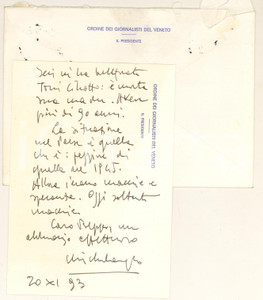 ORDINE DEI GIORNALISTI DEL VENETO
IL PRESIDENTE
ORDINE DEI GIORNALISTI DEL VENETO
IL PRESIDENTE
Ieri mi ha telefonato
Toni Cibotto: è morta
sua madre. Aveva
più di 90 anni.
La situazione
nel Paese è quella
che è: peggiore di
quella nel 1945.
Allora c'erano macerie e
speranze. Oggi soltanto
macerie.
Caro Beppe, un
abbraccio affettuoso
Michelangelo
20 XI 93